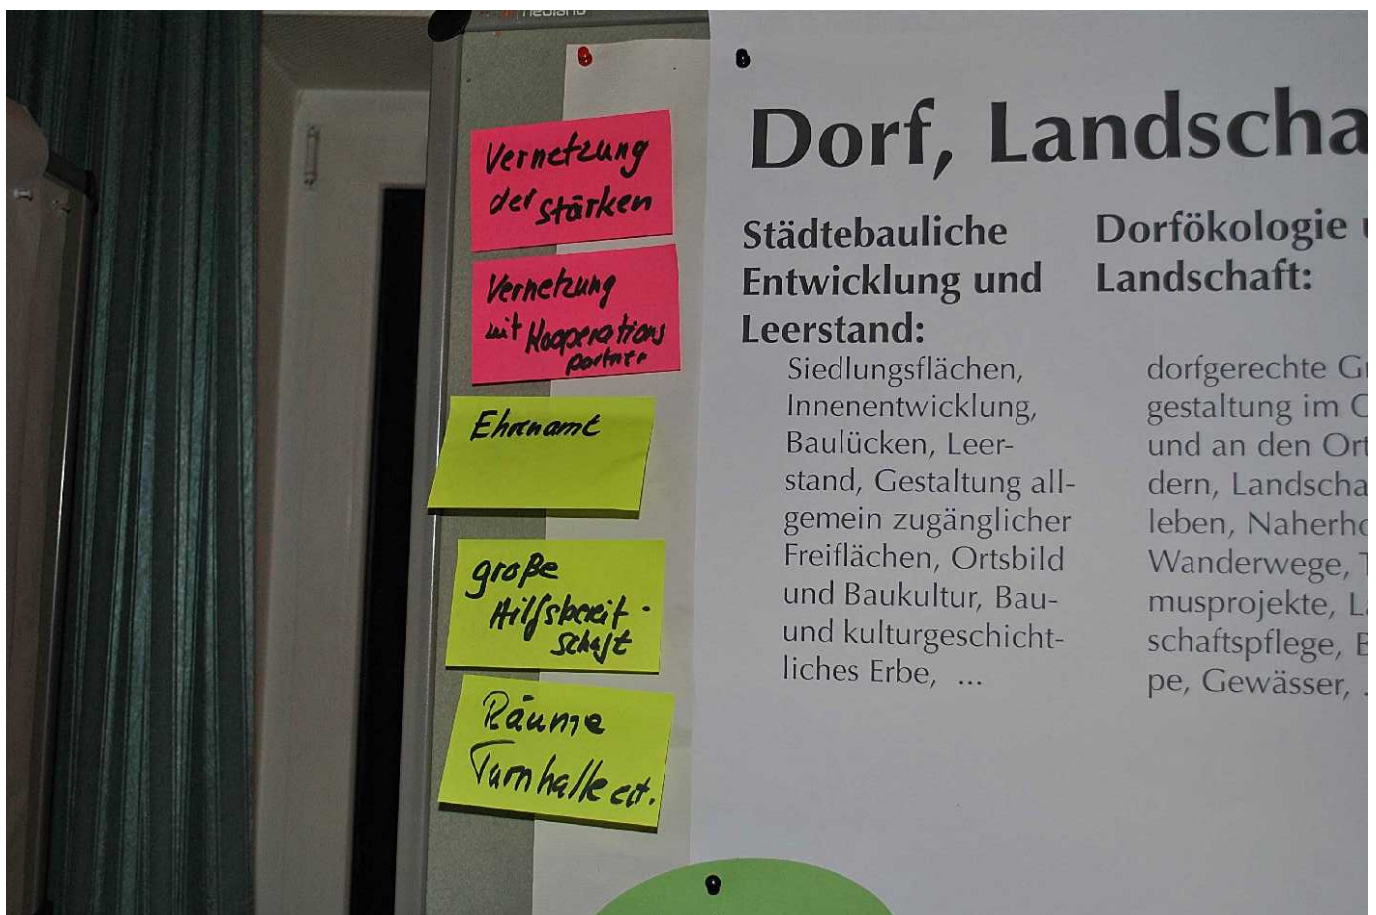 neuland
Vernetzung
der stärken
Vernetzung
mit Kooperations
partner
Ehrenamt
große
Hilfsbereit-
schaft
Räume
Turnhalle ect.
Dorf, Landscha
Städtebauliche
Entwicklung und
Leerstand:
Siedlungsflächen,
Innenentwicklung,
Baulücken, Leer-
stand, Gestaltung all-
gemein zugänglicher
Freiflächen, Ortsbild
und Baukultur, Bau-
und kulturgeschicht-
liches Erbe, ...
Dorfökologie u
Landschaft:
dorfgerechte Gr
gestaltung im O
und an den Ort
dern, Landscha
leben, Naherho
Wanderwege, T
musprojekte, La
schaftspflege, B
pe, Gewässer, .